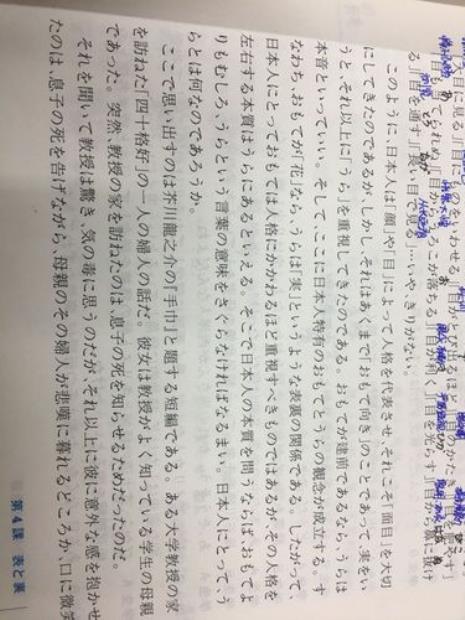 「大目に見る」「目にものをいわせる」「目がとび出るほど」「目のかたき」「
目もあてられぬ」「目からうろこが落ちる」「目が利く」「目を光らす」「目から鼻に抜け
る」「目を通す」「長い目で見る」…いや、きりがない。
このように、日本人は「顔」や「目」によって人格を代表させ、それこそ「面目」を大切
にしてきたのであるが、しかし、それはあくまで「おもて向き」のことであって、実をい
うと、それ以上に「うら」を重視してきたのである。おもてが建前であるなら、うらは
本音といっていい。そして、ここに日本人特有のおもてとうらの観念が成立する。す
なわち、おもてが「花」なら、うらは「実」というような表裏の関係である。したがって、
日本人にとっておもては人格にかかわるほど重視すべきものではあるが、その人格を
左右する本質はうらにあるといえる。そこで日本人の本質を問うならば、おもてよ
りもむしろ、うらという言葉の意味をさぐらなければなるまい。日本人にとって、う
らとは何なのであろうか。
ここで思い出すのは芥川龍之介の『手巾』と題する短編である。ある大学教授の家
を訪ねた「四十格好」の一人の婦人の話だ。彼女は教授がよく知っている学生の母親
であった。突然、教授の家を訪ねたのは、息子の死を知らせるためだったのだ。
それを聞いて教授は驚き、気の毒に思うのだが、それ以上に彼に意外な感を抱かせ
たのは、息子の死を告げながら、母親のその婦人が悲嘆に暮れるどころか、口に微笑
第4課 表と裏